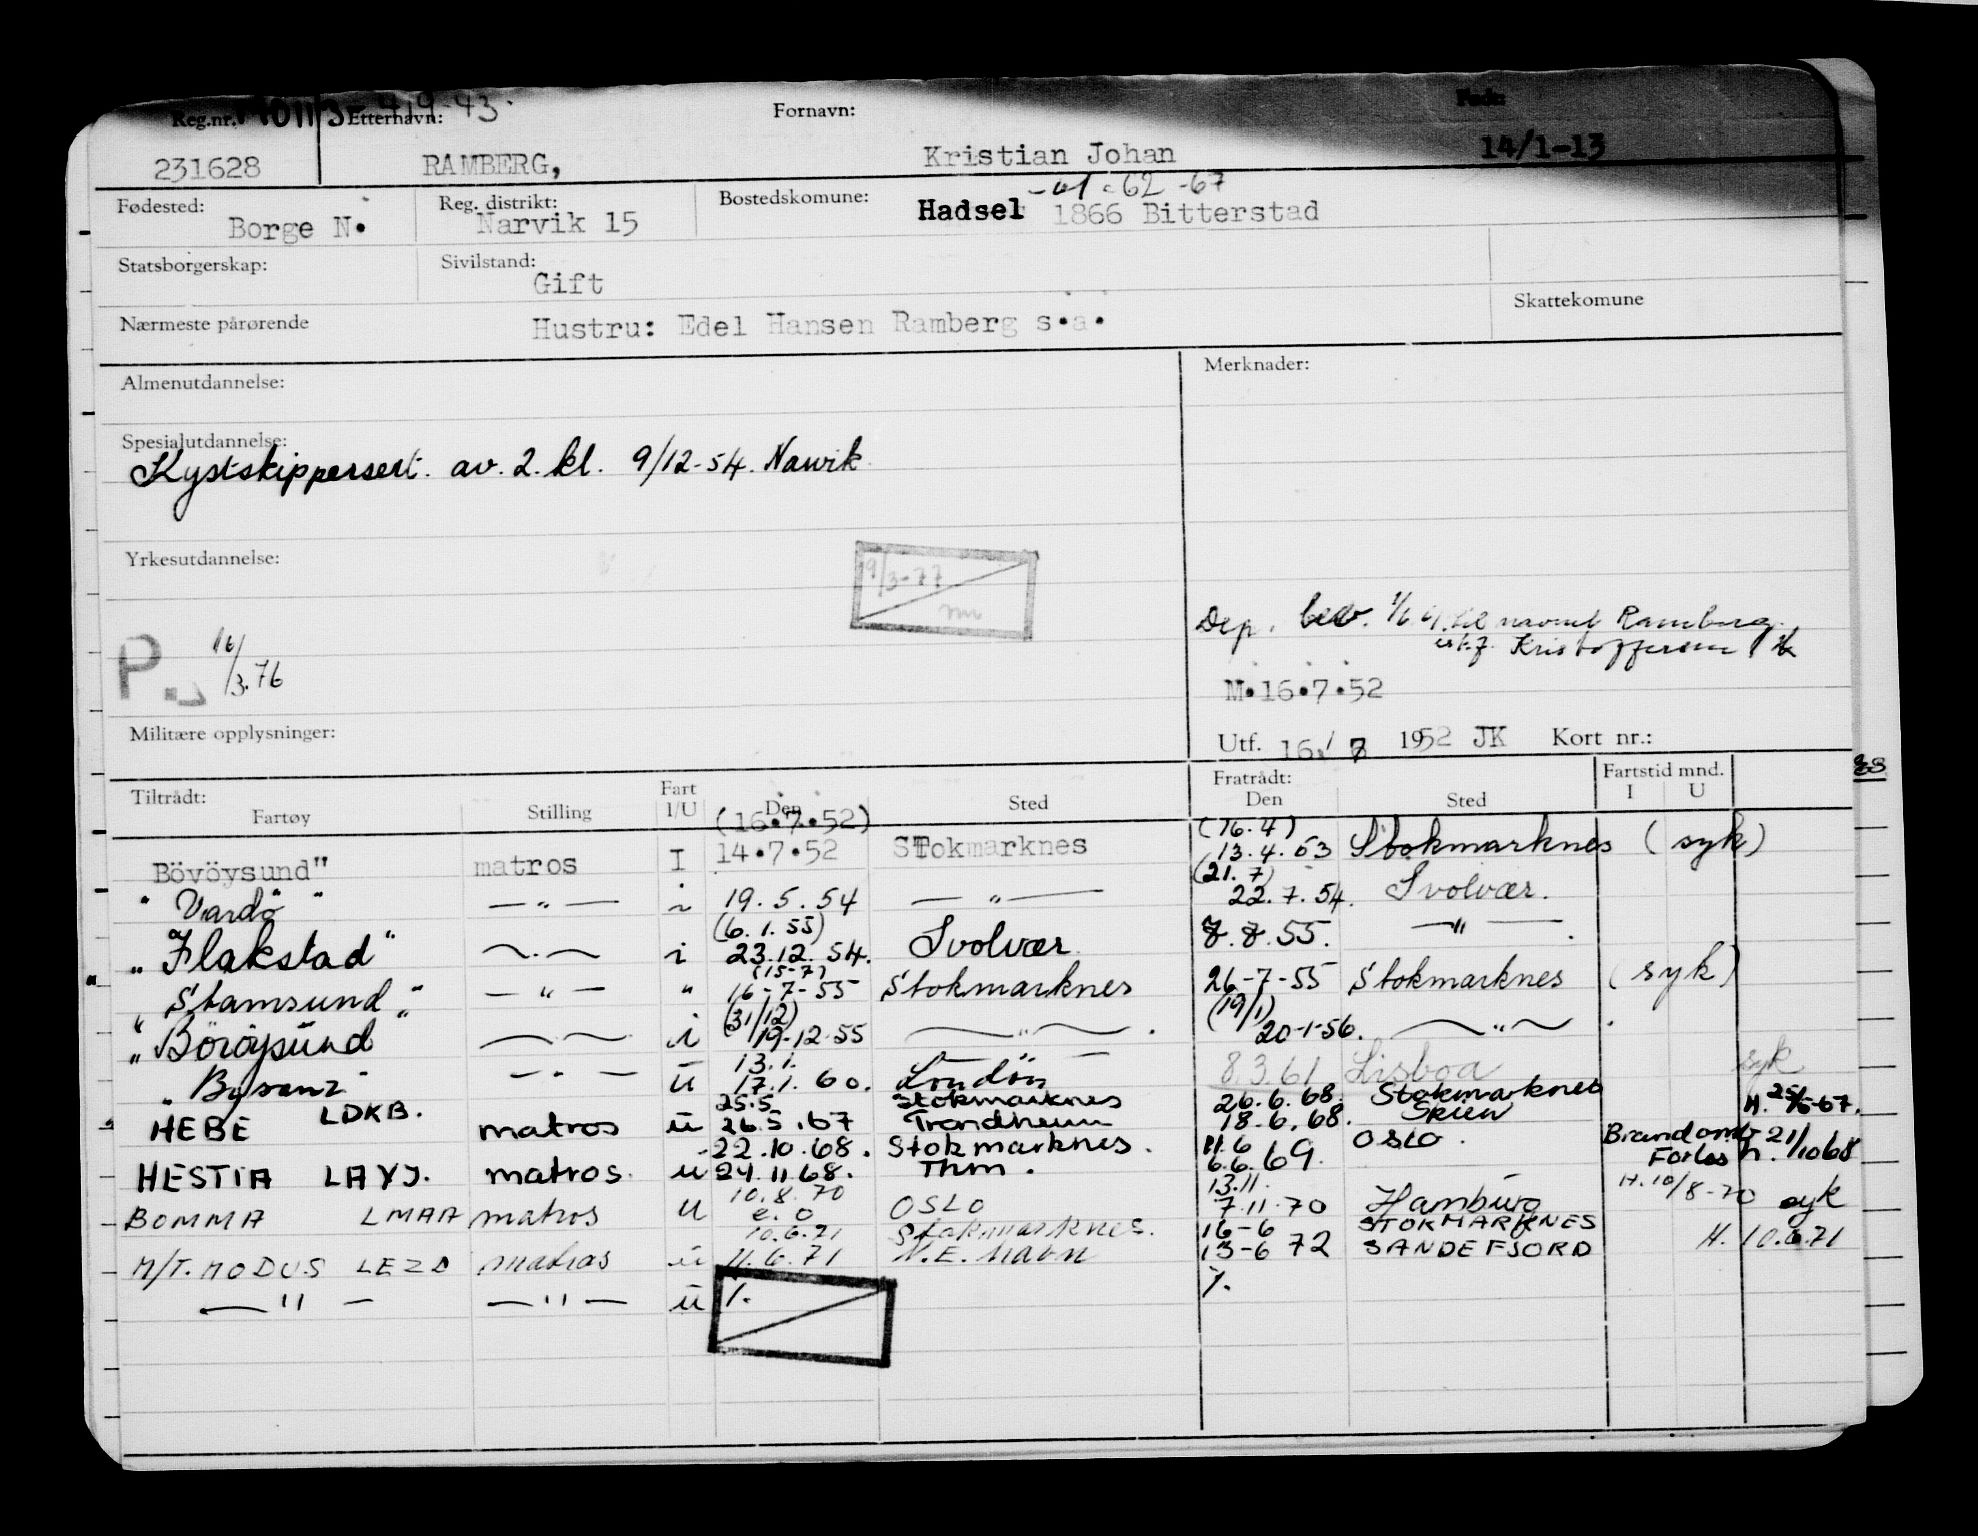 Reg.nr. Etternavn: Fornavn: Født:
231628 RAMBERG, Kristian Johan 14/1-13
-61-62-67
Fødested: Reg. distrikt: Bostedskomune:
Borge N. Narvik 15 Hadsel 1866 Bitterstad
Statsborgerskap: Sivilstand:
Gift
Nærmeste pårørende Hustru: Edel Hansen Ramberg s.a. Skattekomune
Almenutdannelse: Merknader:
Spesialutdannelse:
Kystskippersert. av. 2. kl. 9/12-54. Narvik
Yrkesutdannelse:
19/3-77
Dep. bev. til navnet Ramberg
istf. Kristoffersen
P. 16/3.76
M.16.7.52
Militære opplysninger: Utf. 16/7 1952 JK Kort nr.:
Tiltrådt: Fart Fratrådt: Fartstid mnd.
Fartøy Stilling I/U Den Sted Den Sted I U
(16.7.52) (16.4)
Bövöysund" matros I 14.7.52 Stokmarknes 13.4.53 Stokmarknes (syk)
(21.7)
" Vardö " — " — i 19.5.54 — " — 22.7.54. Svolvær.
(6.1.55)
" Flakstad" i 23.12.54. Svolvær 8.55. — " —
(15-7)
" Stamsund " — " — " 16-7-55 Stokmarknes 26-7-55 Stokmarknes (syk)
(31/12) (19/1)
" Böröysund i 19-12-55 — " — 20-1-56. — " —
13.1.
" Bysanz " — " — u 17.1.60. London 8.3.61 Lisboa syk
25.5 Stokmarknes 26.6.68. Stokmarknes
HEBE LDKB. matros u 26.5.67 Trondheim 18.6.68. Skien H. 25/5-67.
22.10.68. Stokmarknes. 11.6
HESTIA LAYJ. matros. u 24.11.68. Thm. 6.6.69. OSLO. H. 21/10 68
10.8.70 13.11.
BOMMA LMAA matros u e.o OSLO 7.11.70 Hamburg H. 10/8-70 syk
10.6.71 Stokmarknes. 16-6 STOKMARKNES
M/T. MODUS LEZD matros u 11.6.71 N.E. havn 13-6 72 SANDEFJORD H. 10.6.71
— " — — " — u